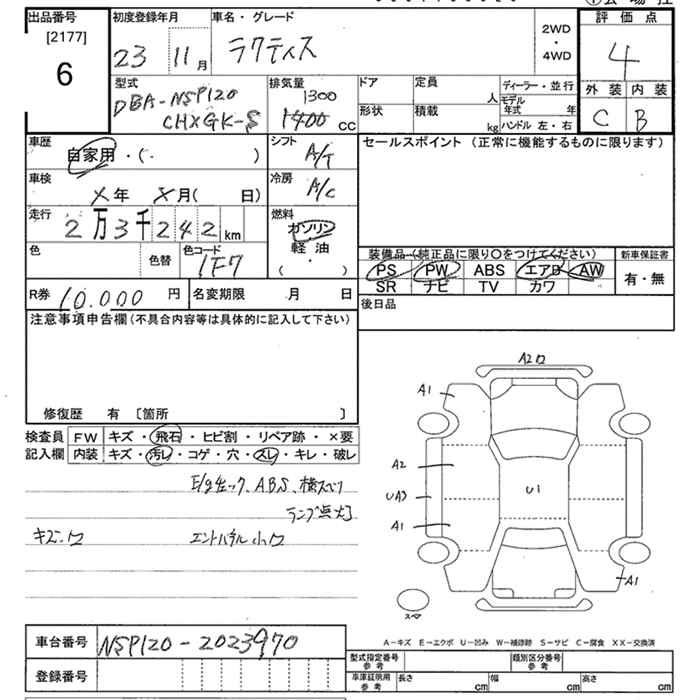 出品番号
[2177]
6
初度登録年月
23 11月
車名・グレード
ラクティス
2WD
・
4WD
評価点
4
外装 内装
C B
型式
DBA-NSP120
CHXGK-S
排気量
1300
1400 cc
ドア
形状
定員 人
積載 kg
ディーラー・並行
モデル年式 年
ハンドル 左・右
車歴
自家用・(・ )
シフト
A/T
車検
X年 X月( 日)
冷房
A/C
走行
2万3千242km
燃料
ガソリン
軽油
( ・ )
色
色替
色コード
1F7
セールスポイント (正常に機能するものに限ります)
装備品(純正品に限り〇をつけてください)
PS PW ABS エアB AW
SR ナビ TV カワ
新車保証書
有・無
R券 10.000 円
名変期限 月 日
後日品
注意事項申告欄(不具合内容等は具体的に記入して下さい)
修復歴 有 〔箇所 〕
検査員記入欄
FW キズ・飛石・ヒビ割・リペア跡・×要
内装 キズ・汚レ・コゲ・穴・スレ・キレ・破レ
ABS、横スベリ
ランプ点灯
キズ
小
A2
A1
A2
UA3
A1
U1
A1
スペア
A-キズ E-エクボ U-凹み W-補修跡 S-サビ C-腐食 XX-交換済
車台番号 NSP120-2023970
登録番号
型式指定番号参考
類別区分番号参考
車庫証明用参考
長さ cm
幅 cm
高さ cm